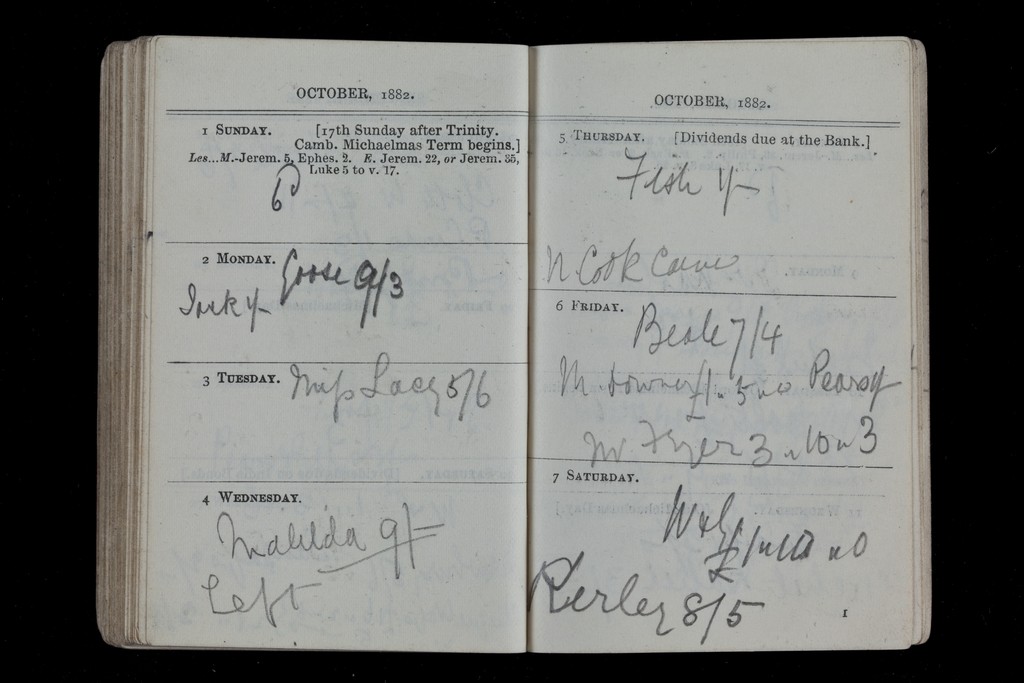 OCTOBER, 1882.
1 SUNDAY. [17th Sunday after Trinity.
Camb. Michaelmas Term begins.]
Les...M.-Jerem. 5, Ephes. 2. E. Jerem. 22, or Jerem. 35,
Luke 5 to v. 17.
6d
2 MONDAY. Goose 9/3
3 TUESDAY. Miss Lacey 5/6
4 WEDNESDAY.
Matilda 9/-
Left
OCTOBER, 1882.
5 THURSDAY. [Dividends due at the Bank.]
Fish 1/-
N Cook Came
6 FRIDAY.
Beale 7/4
M. Downer £1 " 5 " 0 Pears 1/-
Mr Fryer 3 " 10 " 3
7 SATURDAY.
£1 " 10 " 0
Kerley 8/5
1